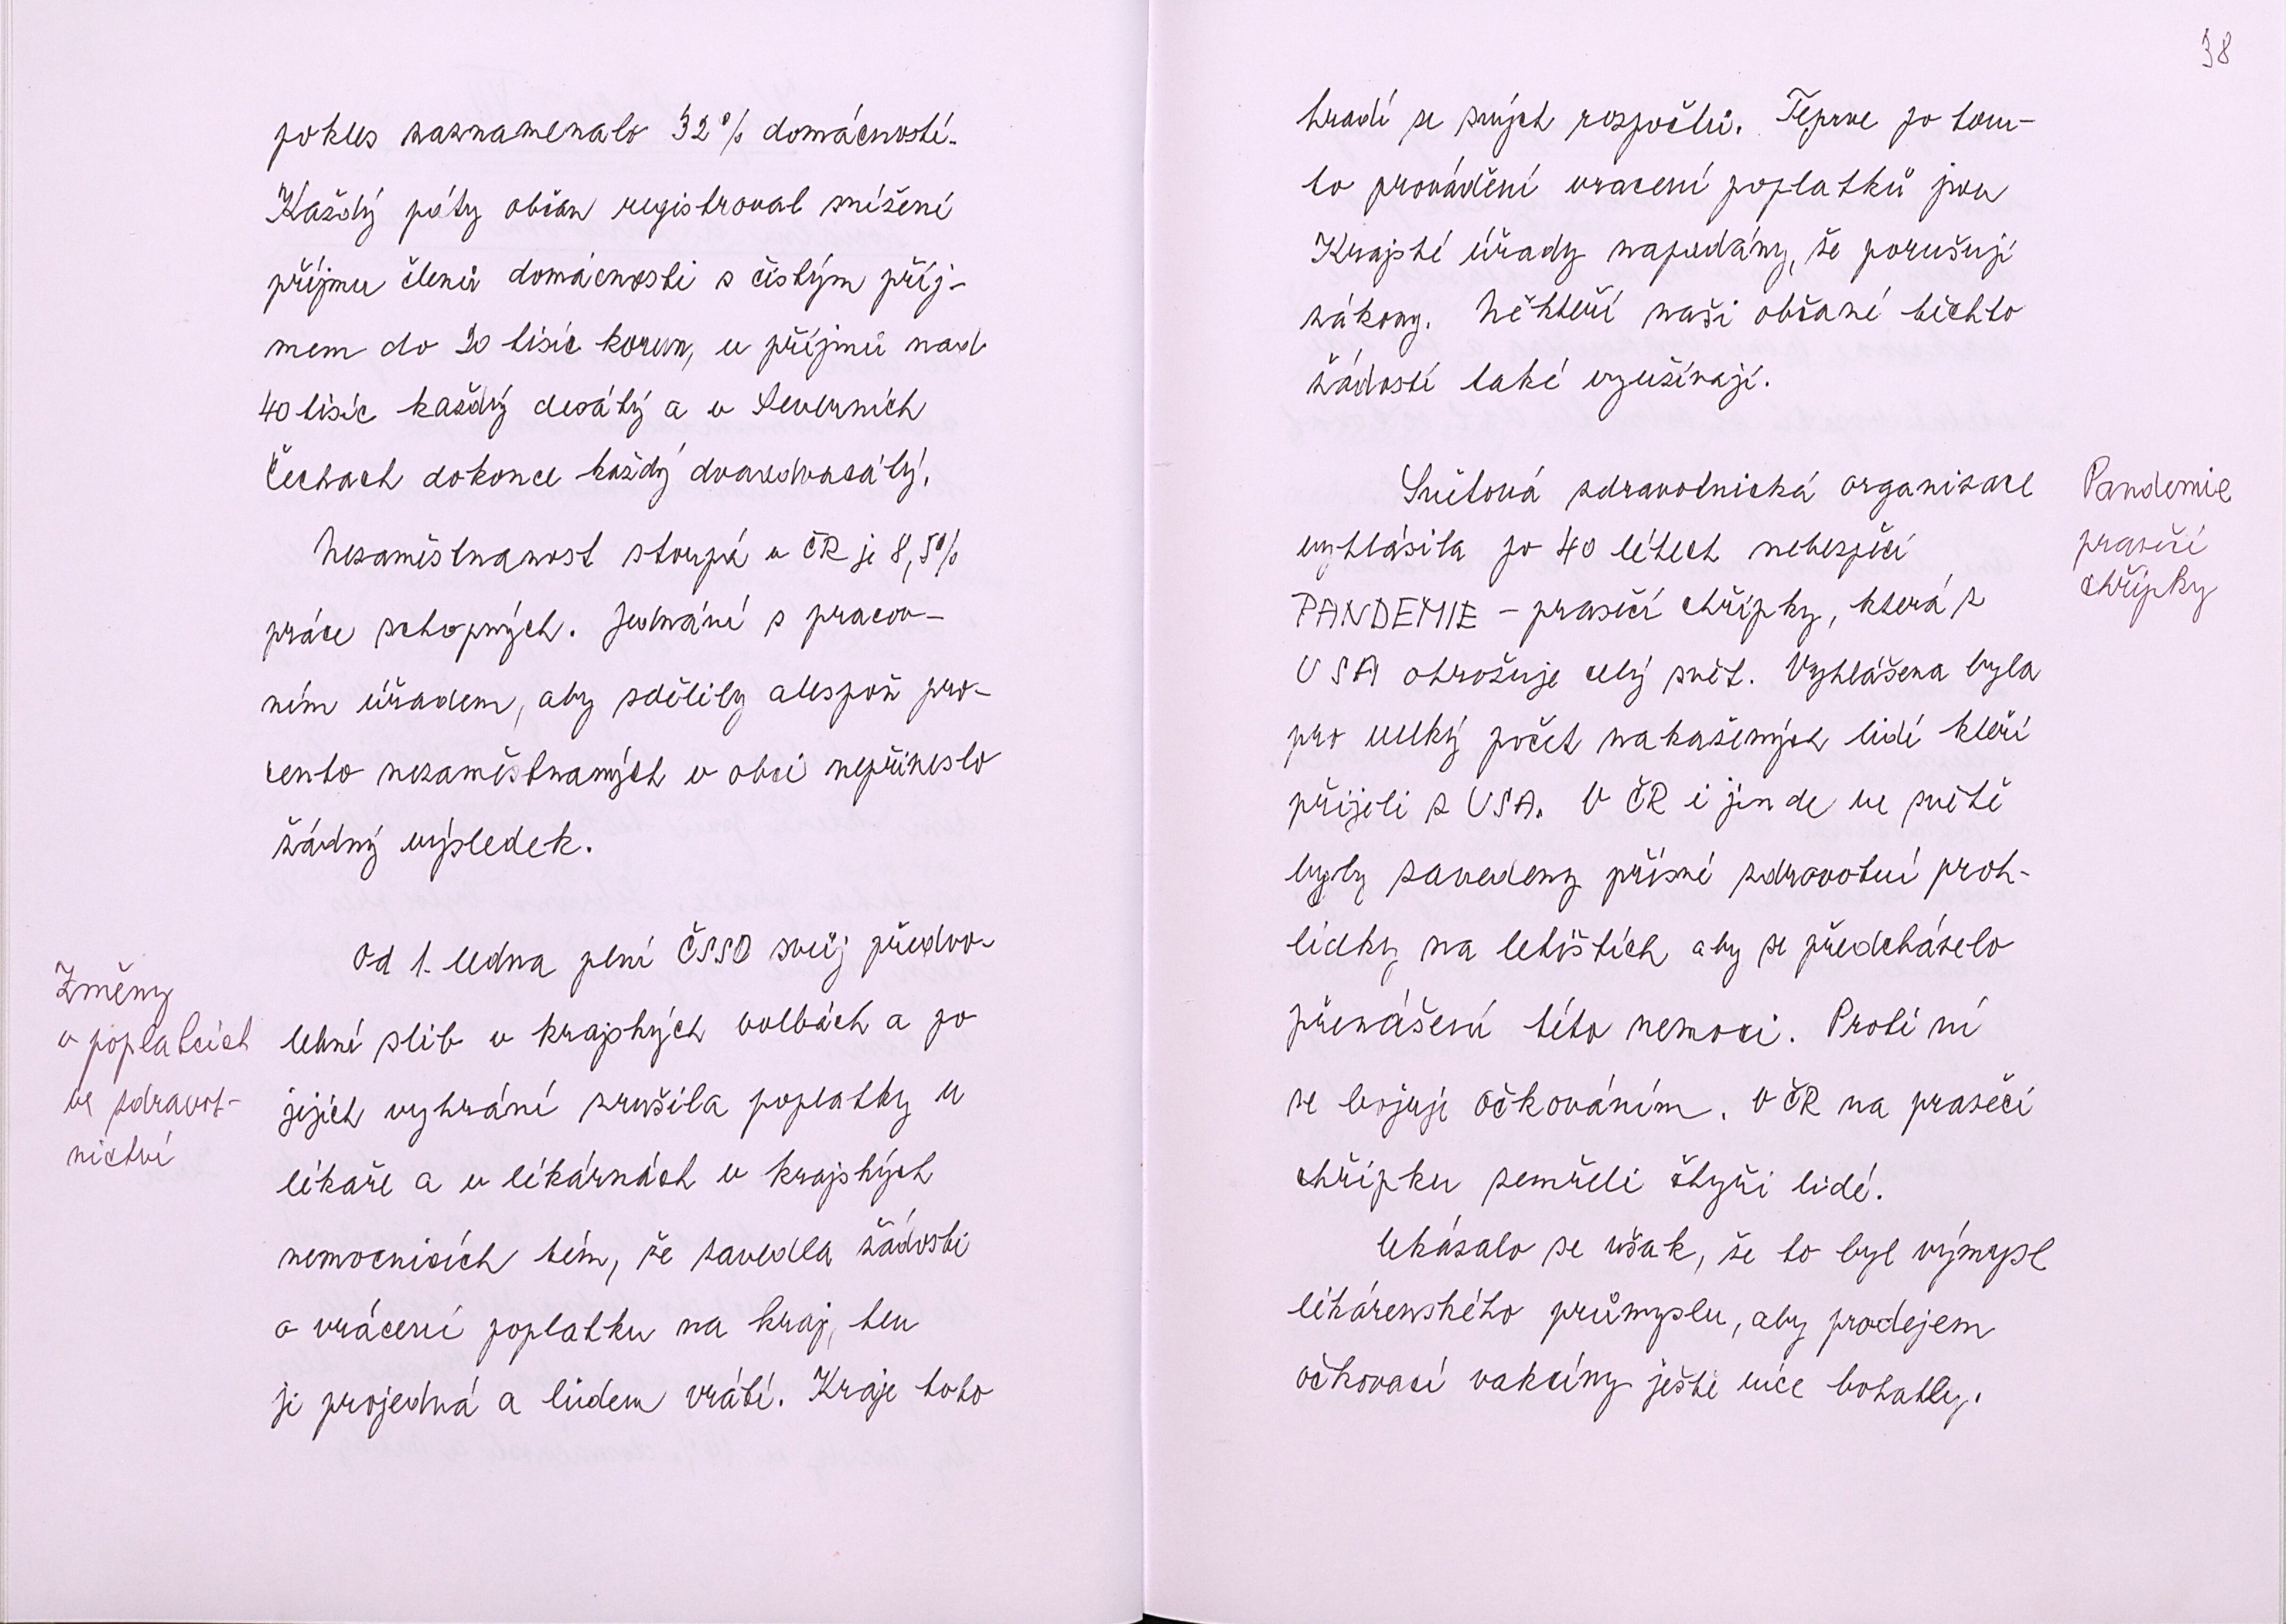 pokles zaznamenalo 32% domácností.
Každý pátý občan registroval snížení
příjmu členů domácnosti s čistým příj-
mem do 20 tisíc korun, u příjmů nad
40 tisíc každý desátý a v Severních
Čechách dokonce každý dvaadvacátý.
Nezaměstnanost stoupá v ČR je 8,5%
práce schopných. Jednání s pracov-
ním úřadem, aby sdělily alespoň pro-
cento nezaměstnaných v obci nepřineslo
žádný výsledek.
Změny
v poplatcích
ve zdravot-
nictví
Od 1. ledna plní ČSSD svůj předvo-
lební slib v krajských volbách a po
jejich vyhrání zrušila poplatky u
lékaře a v lékárnách v krajských
nemocnicích tím, že zavedla žádosti
o vrácení poplatku na kraj, ten
je projedná a lidem vrátí. Kraje toto
38
hradí ze svých rozpočtů. Teprve po tom-
to provádění vracení poplatků jsou
Krajské úřady napadány, že porušují
zákony. Někteří naši občané těchto
žádostí také využívají.
Pandemie
prasečí
chřipky
Světová zdravotnická organizace
vyhlásila po 40 létech nebezpečí
PANDEMIE - prasečí chřipky, která z
USA ohrožuje celý svět. Vyhlášena byla
pro velký počet nakažených lidí kteří
přijeli z USA. V ČR i jinde ve světě
byly zavedeny přísné zdravotní proh-
lídky na letištích, aby se předcházelo
přenášení této nemoci. Proti ní
se bojuje očkováním. V ČR na prasečí
chřipku zemřeli čtyři lidé.
Ukázalo se však, že to byl výmysl
lékárenského průmyslu, aby prodejem
očkovací vakcíny ještě více bohatly.